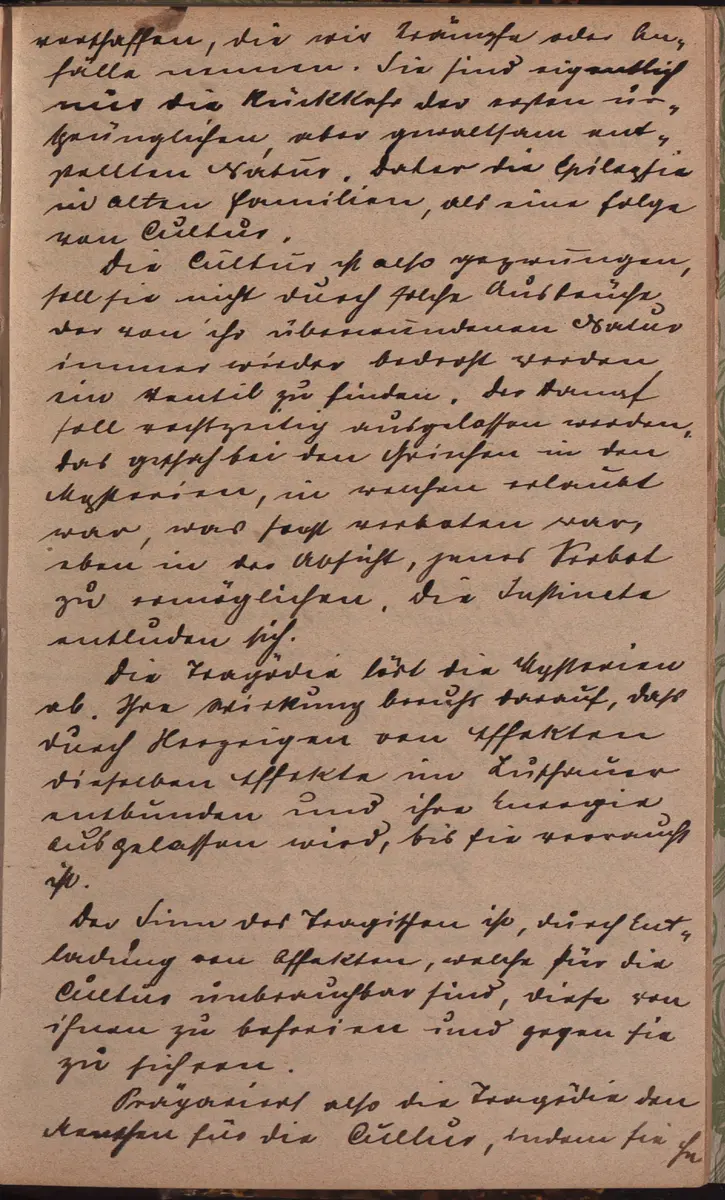 verschaffen, die wir Krämpfe oder An-
fälle nennen. Sie sind eigentlich
nur die Rückkehr der ersten ur-
sprünglichen, aber gewaltsam ent-
stellten Natur. Daher die Epilepsie
in alten Familien, als eine Folge
von Cultur.
Die Cultur ist also gezwungen,
soll sie nicht durch solche Ausbrüche
der von ihr überwundenen Natur
immer wieder bedroht werden,
ein Ventil zu finden. Der Dampf
soll rechtzeitig ausgelassen werden.
Das geschah bei den Griechen in den
Mysterien, in welchen erlaubt
war, was sonst verboten war,
eben in der Absicht, jenes Verbot
zu ermöglichen. Die Instincte
entluden sich.
Die Tragödie löst die Mysterien
ab. Ihre Wirkung beruht darauf, dass
durch Herzeigen von Affekten
dieselben Affekte im Zuschauer
entbunden und ihre Energie
ausgelassen wird, bis sie verraucht
ist.
Der Sinn des Tragischen ist, durch Ent-
ladung von Affekten, welche für die
Cultur unbrauchbar sind, diese von
ihnen zu befreien und gegen sie
zu sichern.
Präpariert also die Tragödie den
Menschen für die Cultur, indem sie ihn